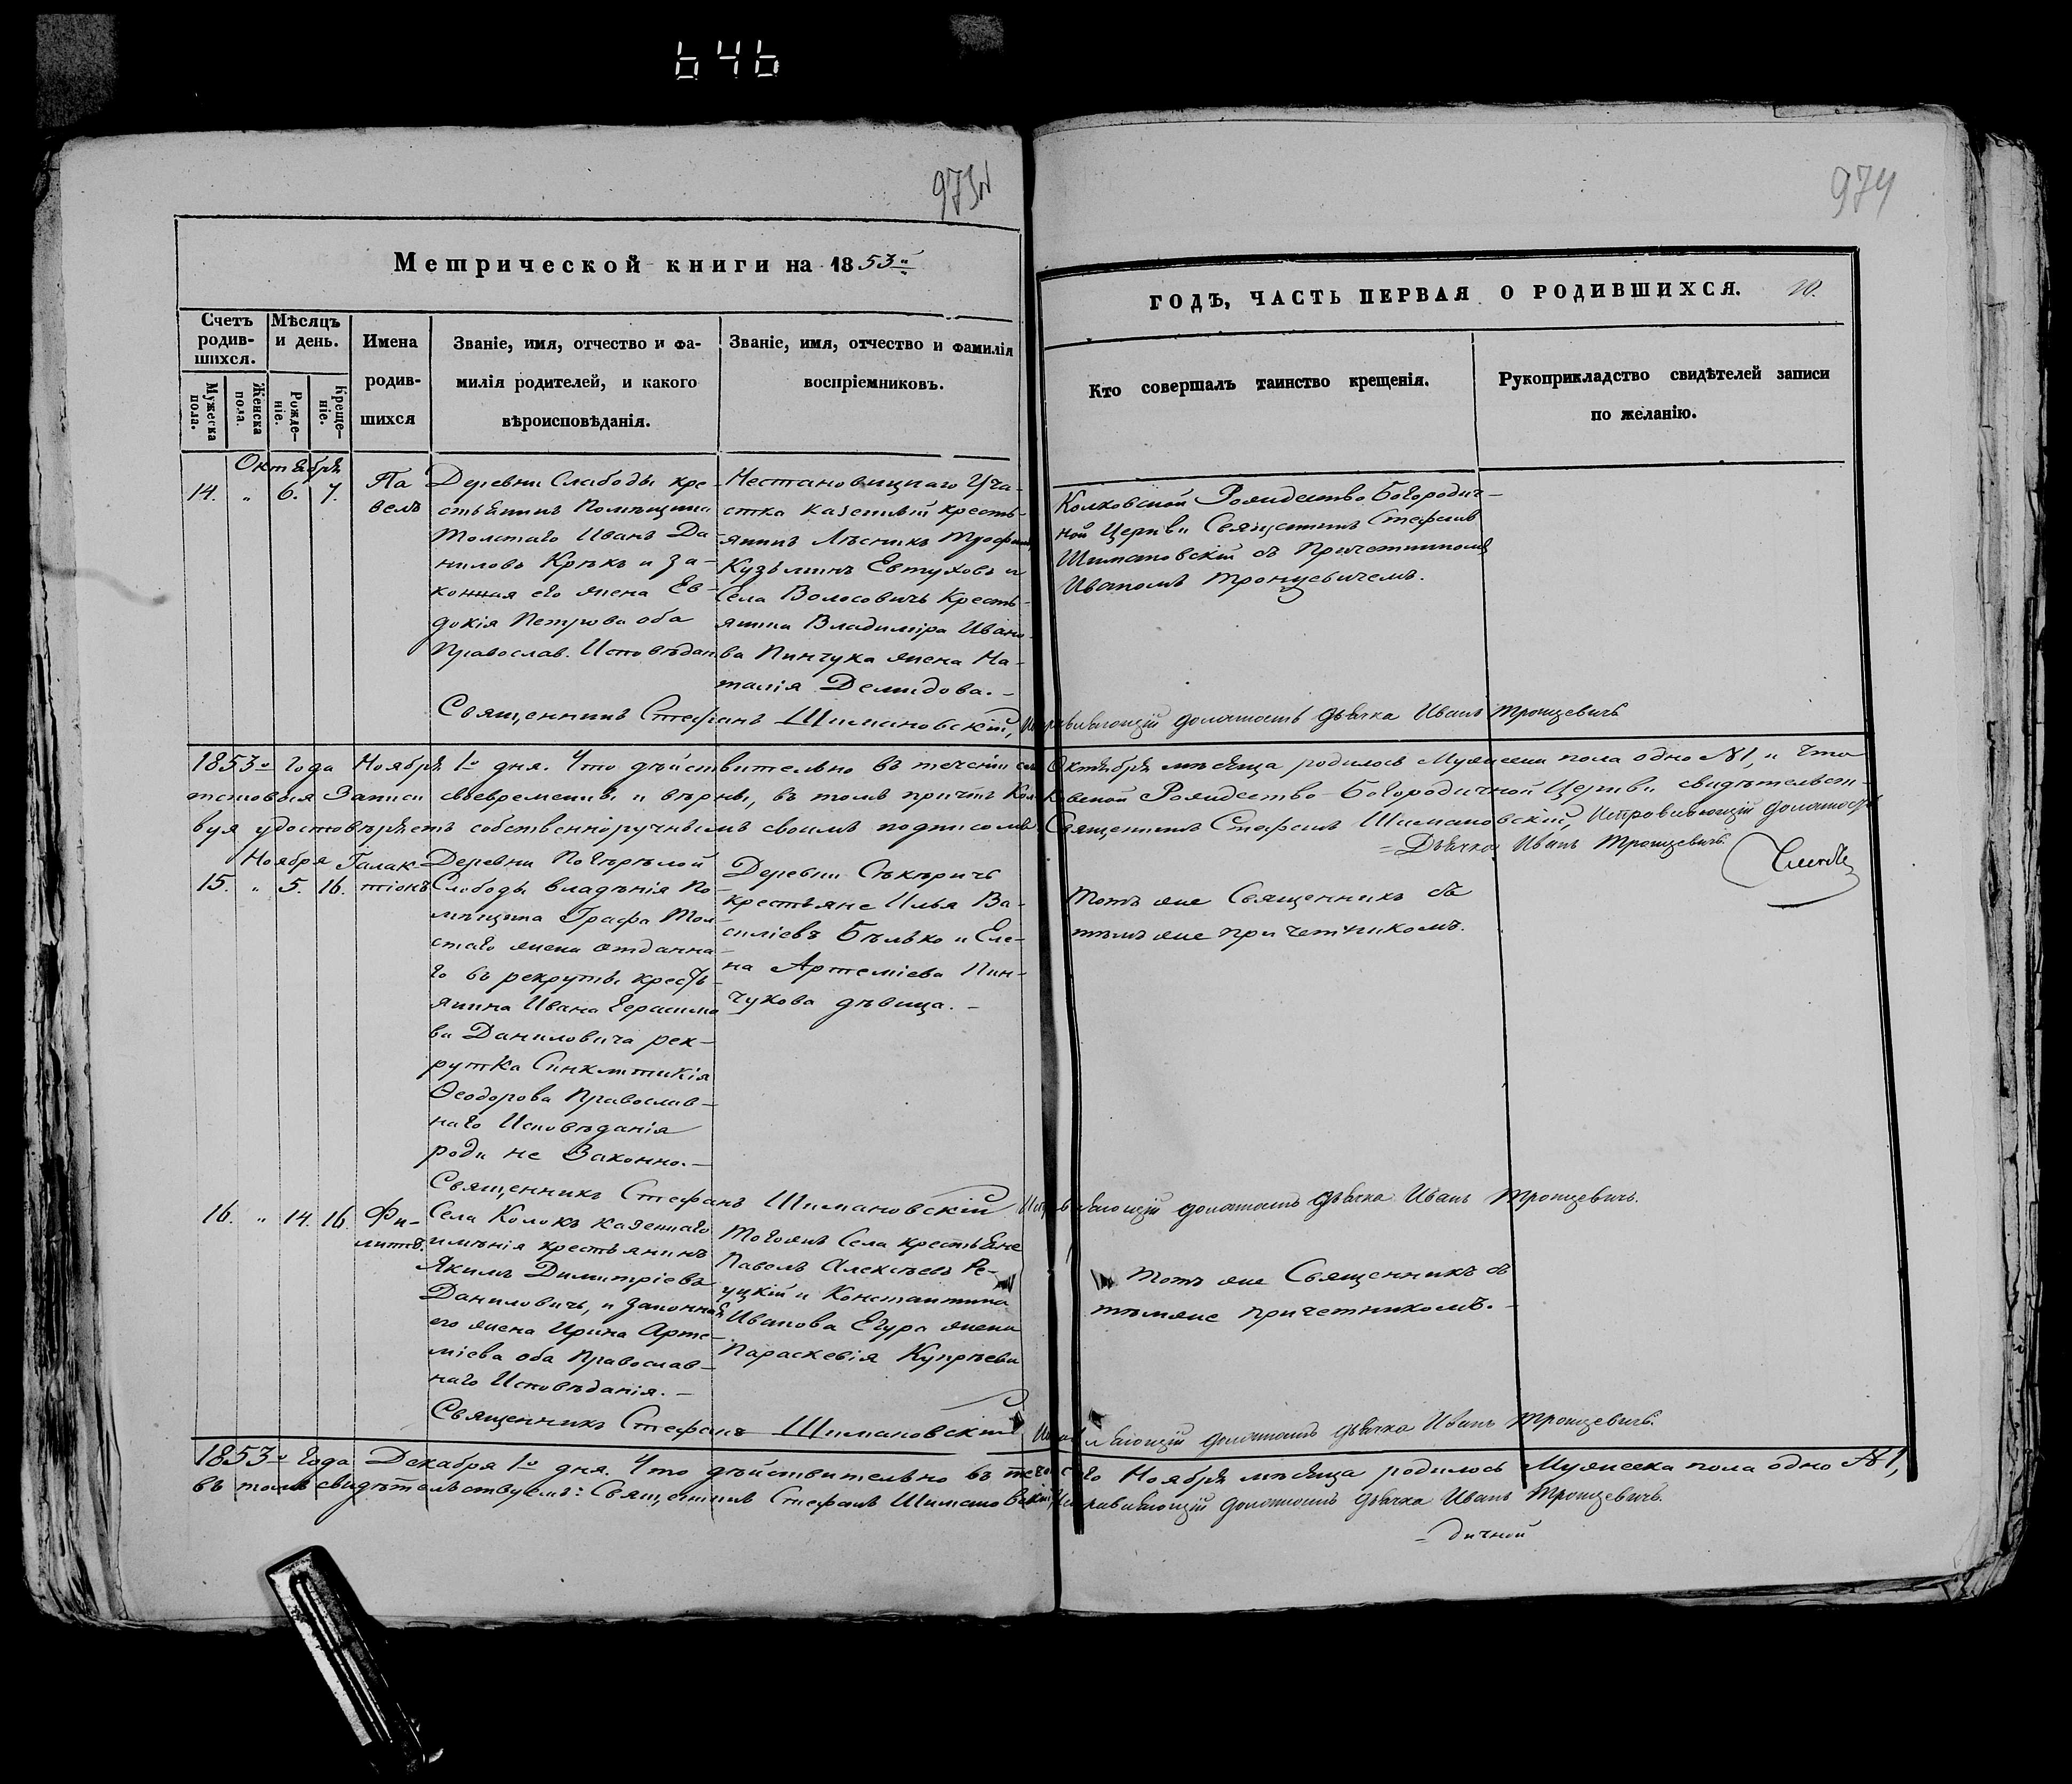 646
973
974
Метрической книги на 1853й
ГОДЪ, ЧАСТЬ ПЕРВАЯ О РОДИВШИХСЯ. 20.
Счетъ родив-шихся.
Мѣсяцъ и день.
Мужеска пола.
Женска пола.
Рожде-ніе.
Креще-ніе.
Имена
родив-
шихся
Званіе, имя, отчество и фа-
милія родителей, и какого
вѣроисповѣданія.
Званіе, имя, отчество и фамилія
воспріемниковъ.
Кто совершалъ таинство крещенія.
Рукоприкладство свидѣтелей записи
по желанію.
Октября
14. " 6. 7.
Па
велъ
Деревни Слабоды кре-
стьянинъ Помѣщика
Толстаго Иванъ Да-
ниловъ Крукъ и за-
конная его жена Ев-
докія Петрова оба
Православ. Исповѣдан.
Нестановицкаго Уча-
стка казенный кресть-
янинъ Лѣсникъ Трофимъ
Кузьминъ Евтуховъ и
Села Волосовичъ Кресть-
янина Владиміра Ивано-
ва Пинчука жена На-
талія Демидова.-
Колковской Рождество Богородич-
ной Церкви Священникъ Стефанъ
Шимановскій съ Причетникомъ
Иваномъ Тронцевичемъ.
Священникъ Стефанъ Шимановскій, Исправляющій должность дьячка Иванъ Тронцевичъ
1853го Года Ноября 1го дня. Что дѣйствительно въ теченіи сего Октября мѣсяца родилось Мужеска пола одно №1, и что
таковыя Записи своевременны и вѣрны, въ томъ причтъ Колковской Рождество-Богородичной Церкви свидѣтельст-
вуя удостовѣряетъ собственноручнымъ своимъ подписомъ: Священникъ Стефанъ Шимановскій, Исправляющій должность
= Дьячка Иванъ Тронцевичъ.
Ноября
15. " 5. 16.
Галак-
тіонъ
Деревни Погорѣлой
Слободы владѣнія По-
мѣщика Графа Тол-
стаго жена отданна-
го въ рекруты кресть-
янина Ивана Герасимо-
ва Даниловича рек-
рутка Синклитикія
Ѳеодорова Православ-
наго Исповѣданія
роди не Законно.-
Деревни Сѣкѣричъ
крестьяне Илья Ва-
силіевъ Бѣлько и Еле-
на Артеміева Пин-
чукова дѣвица.-
Тотъ же Священникъ съ
тѣмъ же причетникомъ.
Священникъ Стефанъ Шимановскій Исправляющій должность дьячка Иванъ Тронцевичъ.
16. " 14. 16.
Фи-
липпъ.
Села Колокъ казеннаго
имѣнія крестьянинъ
Якимъ Димитріевъ
Даниловичъ, и законная
его жена Ирина Арте-
міева оба Православ-
наго Исповѣданія.-
Тогожъ Села крестьяне
Павелъ Алексѣевъ Ре-
уцкій и Константина
Иванова Егура жена
Параскевія Купрѣева
Тотъ же Священникъ съ
тѣмже причетникомъ.-
Священникъ Стефанъ Шимановскій Исправляющій должность дьячка Иванъ Тронцевичъ.
1853го Года Декабря 1го дня. Что дѣйствительно въ теченіи сего Ноября мѣсяца родилось Мужеска пола одно №1,
въ томъ свидѣтельствуемъ: Священникъ Стефанъ Шимановскій, Исправляющій должность дьячка Иванъ Тронцевичъ.
= дичной